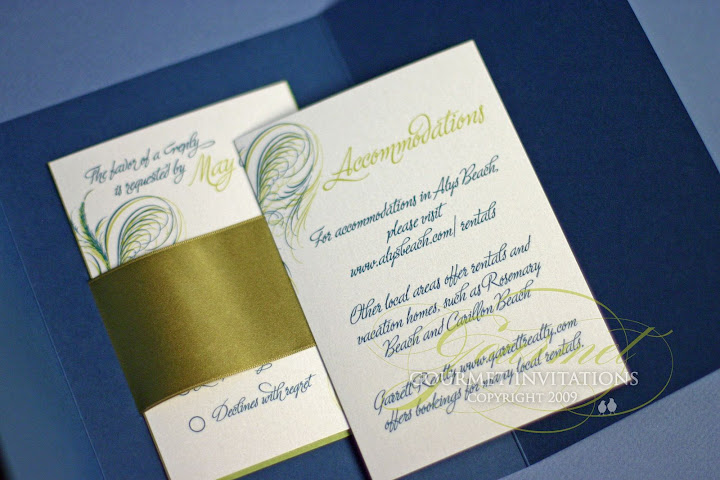 The favor of a Reply
is requested by May
Declines with regret
Accommodations
For accommodations in Alys Beach,
please visit
www.alysbeach.com/rentals
Other local areas offer rentals and
vacation homes, such as Rosemary
Beach and Carillon Beach
Garrett Realty www.garrettrealty.com
offers bookings for many local rentals.
Gourmet
GOURMET INVITATIONS
COPYRIGHT 2009